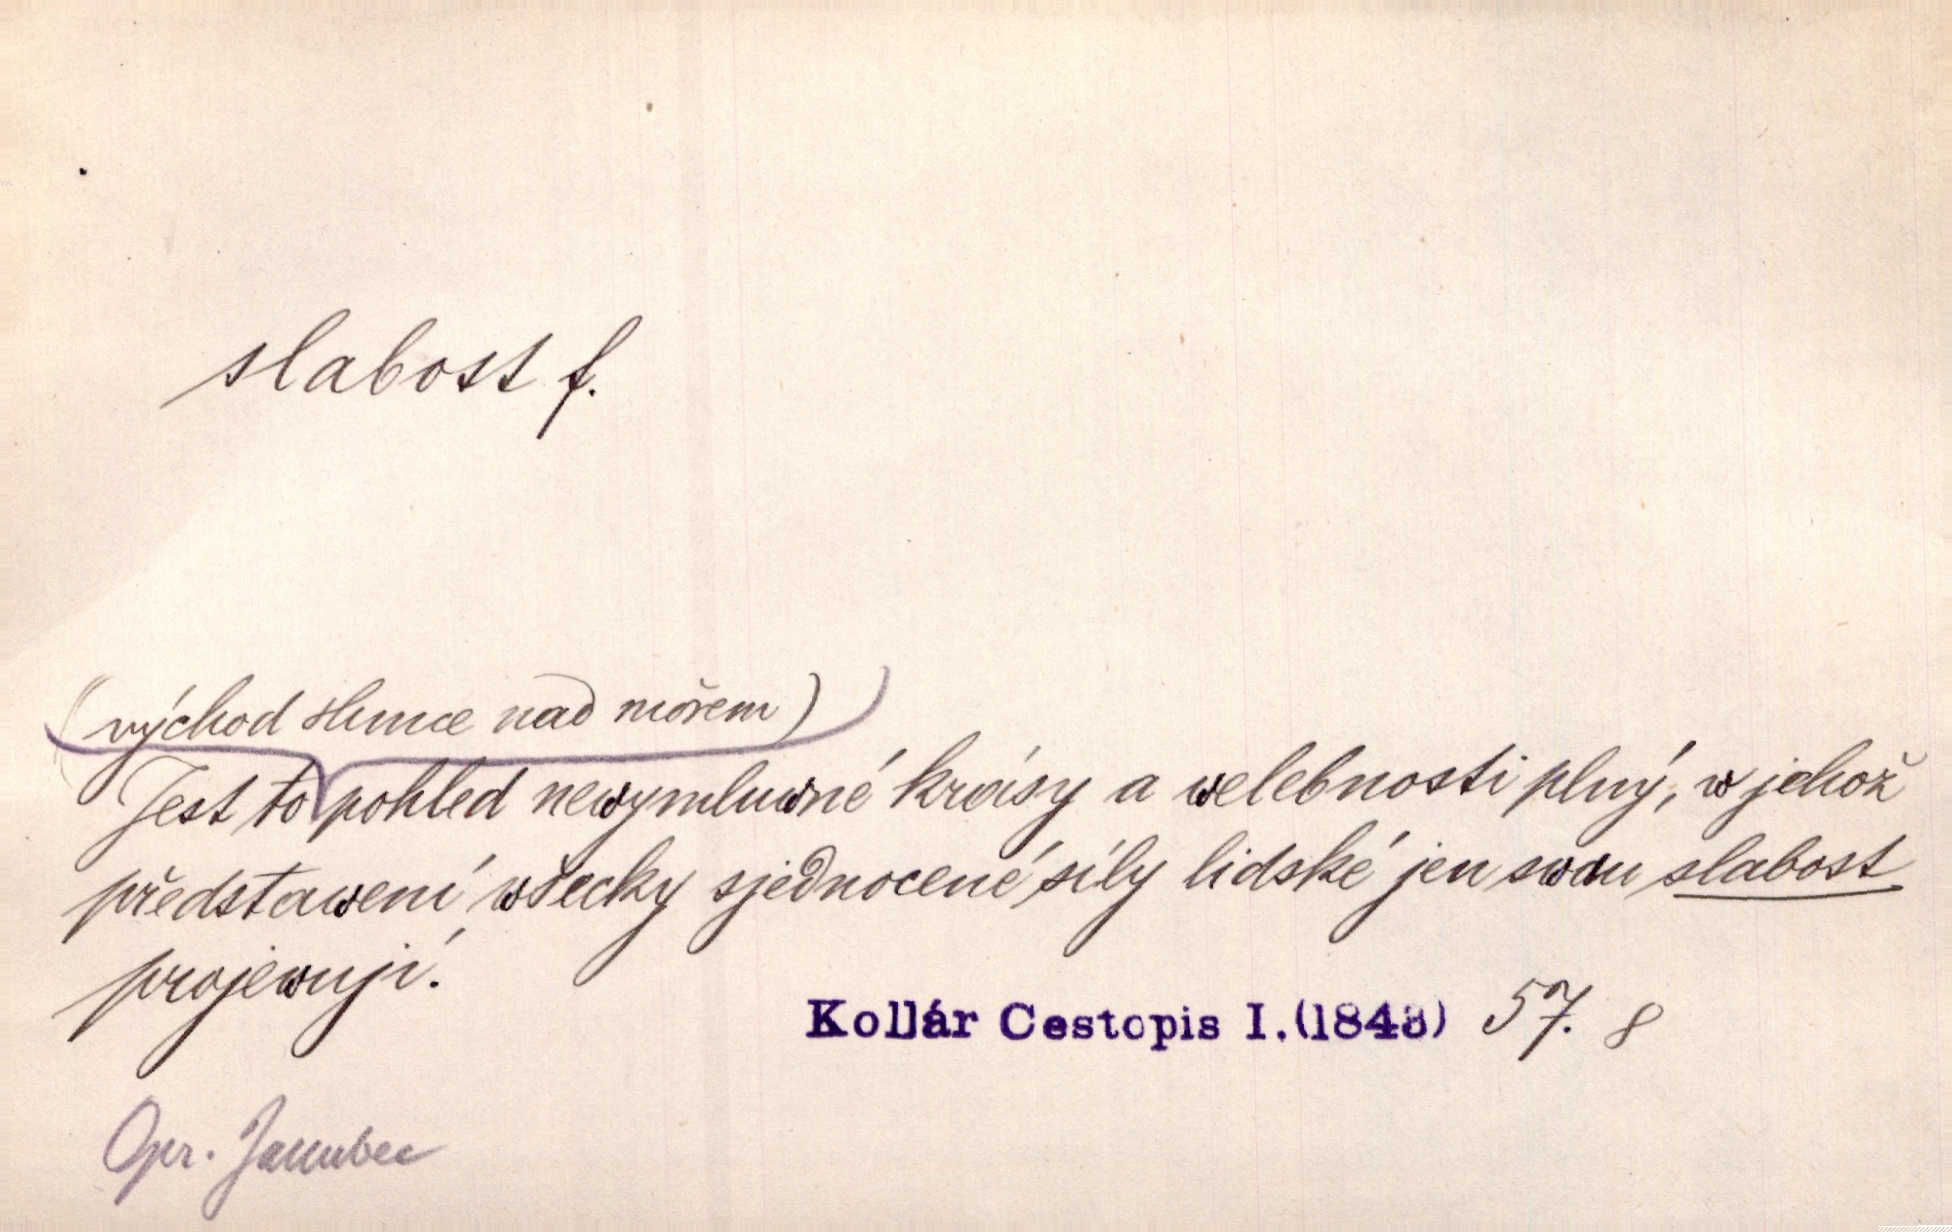 slabost f.
(východ slunce nad mořem)
Jest to pohled newymluwné krásy a welebnosti plný, w jehož
představení wšecky sjednocené síly lidské jen swau slabost
projewují.
Kollár Cestopis I.(1843) 57. 8
Opr. Janubec